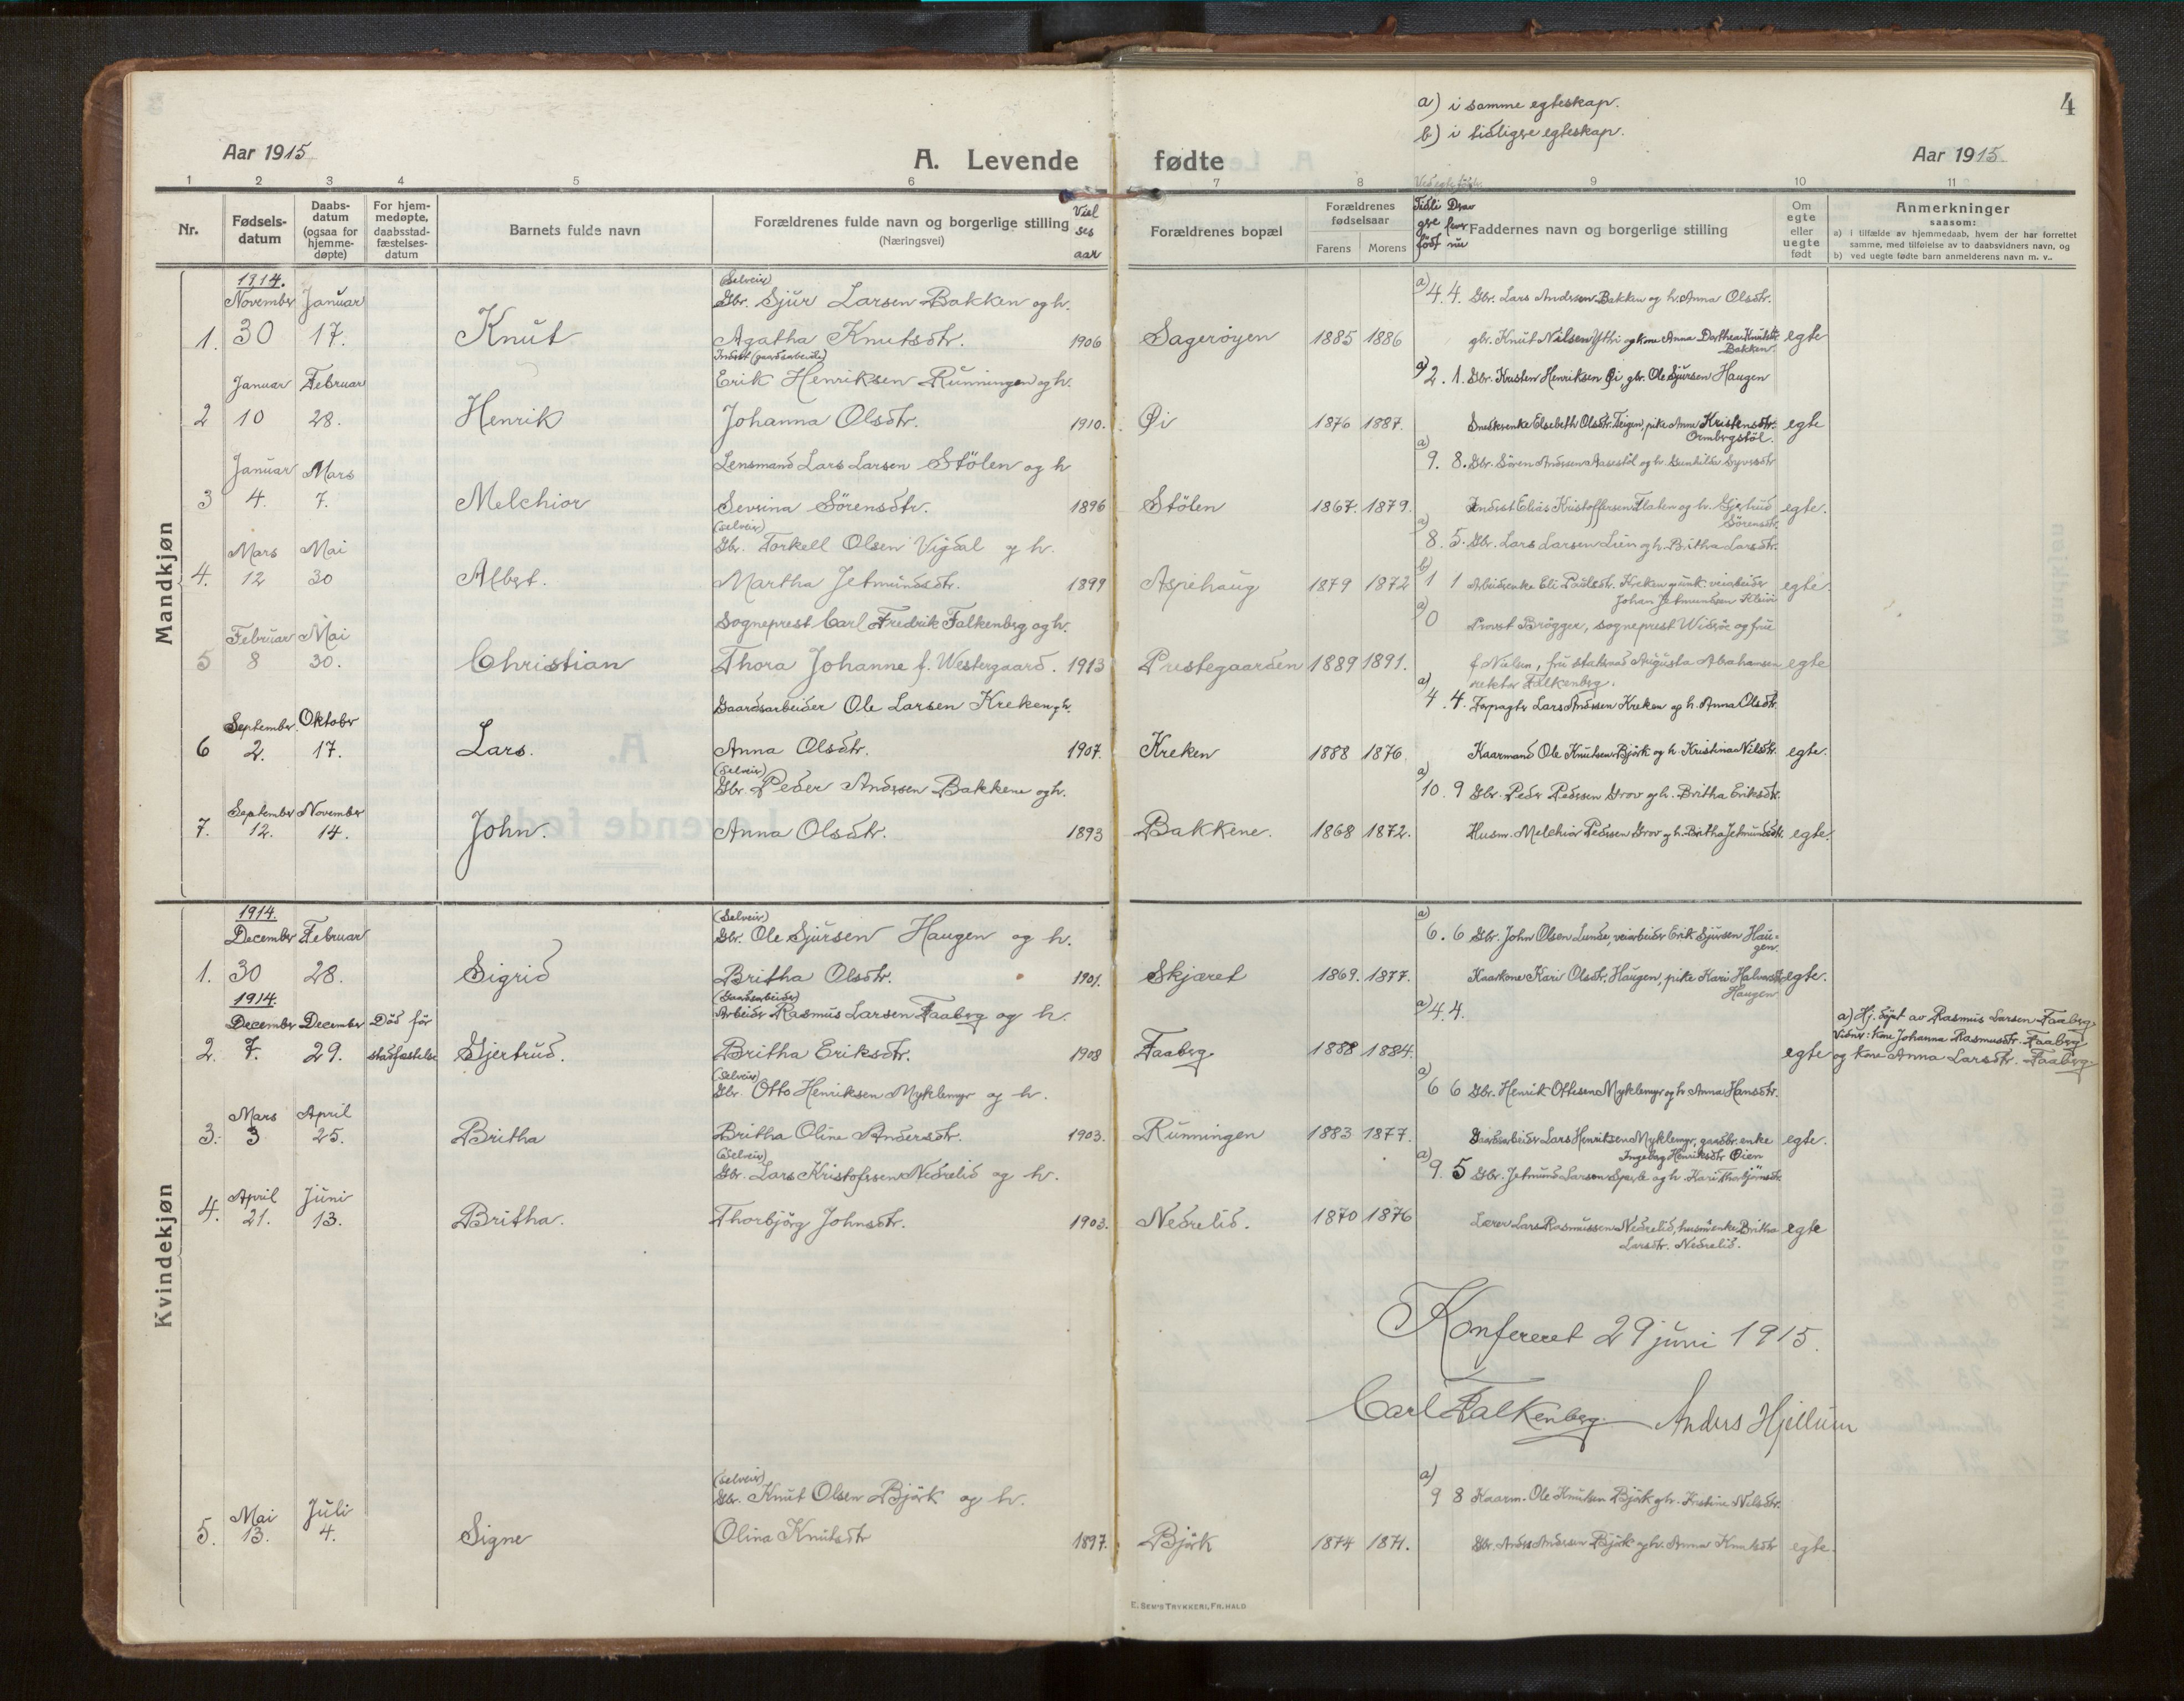 a) i samme egteskap.
b) i tidligere egteskap.
4
Aar 1915
A. Levende fødte
Aar 1915
1 2 3 4 5 6 7 8 9 10 11
Nr.
Fødsels-
datum
Daabs-
datum
(ogsaa for
hjemme-
døpte)
For hjem-
medøpte,
daabsstad-
fæstelses-
datum
Barnets fulde navn
Forældrenes fulde navn og borgerlige stilling
(Næringsvei)
Viel
ses
aar
Forældrenes bopæl
Forældrenes
fødselsaar
Farens Morens
Tidli
gere
født
Derav
lever
nu
Faddernes navn og borgerlige stilling
Om
egte
eller
uegte
født
Anmerkninger
saasom:
a) i tilfælde av hjemmedaab, hvem der har forrettet
samme, med tilføielse av to daabsvidners navn, og
b) ved uegte fødte barn anmelderens navn m. v..
Mandkjøn
1914.
November Januar
(Selveier)
Gbr. Sjur Larsen Bakken og h.
a) 4. 4. Gbr. Lars Andersen Bakken og h. Anna Olsdtr.
1. 30 17. Knut Agatha Knutsdtr. 1906 Sagerøyen 1885 1886 gbr. Knut Nilsen Ytri og kone Anna Dorthea Knutsdtr. egte
Bakken.
Inderst (gaardsarbeider)
Januar Februar Erik Henriksen Rünningen og h.
a) 2. 1. Gbr. Kristen Henriksen Øi, gbr. Ole Sjursen Haugen
2 10 28. Henrik Johanna Olsdtr. 1910. Øi 1876 1887. Snedkerenke Elsebeth Olsdtr. Teigen, pike Anne Kristensdtr. egte
Ormbergstøl.
Januar Mars Lensmand Lars Larsen Stølen og h
a) 9. 8. Gbr. Søren Andersen Aasestøl og h. Gunhilda Syversdtr
3 4. 7. Melchior Severina Sørensdtr. 1896 Stølen 1867. 1879. Inderst Elias Kristoffersen Flaten og h. Gjertrud egte.
Sørensdtr.
(Selveier)
Mars Mai Gbr. Torkell Olsen Vigdal og h.
a) 8. 5. Gbr. Lars Larsen Lien og h. Britha Larsdtr.
4. 12 30 Albert. Martha Jetmundsdtr. 1899 Aspehaug 1879 1872 b) 1 1 Arbeiderenke Eli Paulsdtr. Kreken og unk. veiarbeider egte.
Johan Jetmundsen Kleivi
Februar Mai Sogneprest Carl Fredrik Falkenberg og h.
a) 0 Provst Brøgger, sogneprest Widsøe og frue
5 8 30. Christian Thora Johanne f. Westergaard. 1913 Prestegaarden 1889 1891. f. Nielsen, fru statsraad Augusta Abrahamsen egte
rektor Falkenberg.
September Oktober Gaardsarbeider Ole Larsen Kreken og h.
a) 4. 4. Forpagter Lars Andersen Kreken og h. Anna Olsdtr.
6 2. 17. Lars. Anna Olsdtr. 1907. Kreken 1888 1876. Kaarmand Ole Knutsen Bjørk og h. Kristina Nilsdtr. egte.
(Selveier)
September November Gbr. Peder Andersen Bakkene og h.
a) 10. 9 Gbr. Peder Pedersen Grov og h. Britha Eriksdtr.
7. 12. 14. John. Anna Olsdtr. 1893 Bakkene. 1868 1872. Husm. Melchior Pedersen Grov og h. Britha Jetmundsdtr. egte.
Kvindekjøn
1914.
December Februar
(Selveier)
Gbr. Ole Sjursen Haugen og h.
a) 6. 6 Gbr. John Olsen Lunde, veiarbeider Erik Sjursen Hau-
gen.
1. 30 28. Sigrid Britha Olsdtr. 1901. Skjæret 1869. 1877. Kaarkone Kari Olsdtr. Haugen, pike Kari Halvorsdtr. egte.
Haugen
1914.
(Gaardsarbeider)
December December Død før Arbeider Rasmus Larsen Faaberg og h.
a) 4. 4.
a) Hj. døpt av Rasmus Larsen Faaberg
Vidner: kone Johanna Rasmusdtr. Faaberg
2. 7. 29. stadfæstelse Gjertrud. Britha Eriksdtr. 1908 Faaberg 1888 1884. egte og kone Anna Larsdtr. Faaberg
(Selveier)
Mars April Gbr. Otto Henriksen Myklemyr og h.
a) 6 6 Gbr. Henrik Ottesen Myklemyr og h. Anna Hansdtr.
3. 3 25. Britha Britha Oline Andersdtr. 1903. Rünningen 1883 1877. Gaardsarbeider Lars Henriksen Myklemyr, gaardbr. enke egte.
Ingeborg Henriksdtr Øien
(Selveier)
April Juni Gbr. Lars Kristofersen Nedrelid og h.
a) 9. 5 Gbr. Jetmund Larsen Sperle og h. Kari Thorbjørnsdtr.
4. 21. 13. Britha. Thorbjørg Johnsdtr. 1903. Nedrelid. 1870 1876 Lærer Lars Rasmussen Nedrelid, husm. enke Britha egte
Larsdtr. Nedrelid.
Konfereret 29 juni 1915.
Carl Falkenberg. Anders Hjellum
(Selveier)
Mai Juli Gbr. Knut Olsen Bjørk og h.
a) 9 8 Kaarm. Ole Knutsen Bjørk og h. Kristine Nilsdtr.
5. 13. 4. Signe Olina Knutsdtr 1897. Bjørk 1874 1871. Gbr. Anders Andersen Bjørk og h. Anna Knutsdtr egte.
E. SEM'S TRYKKERI, FR. HALD